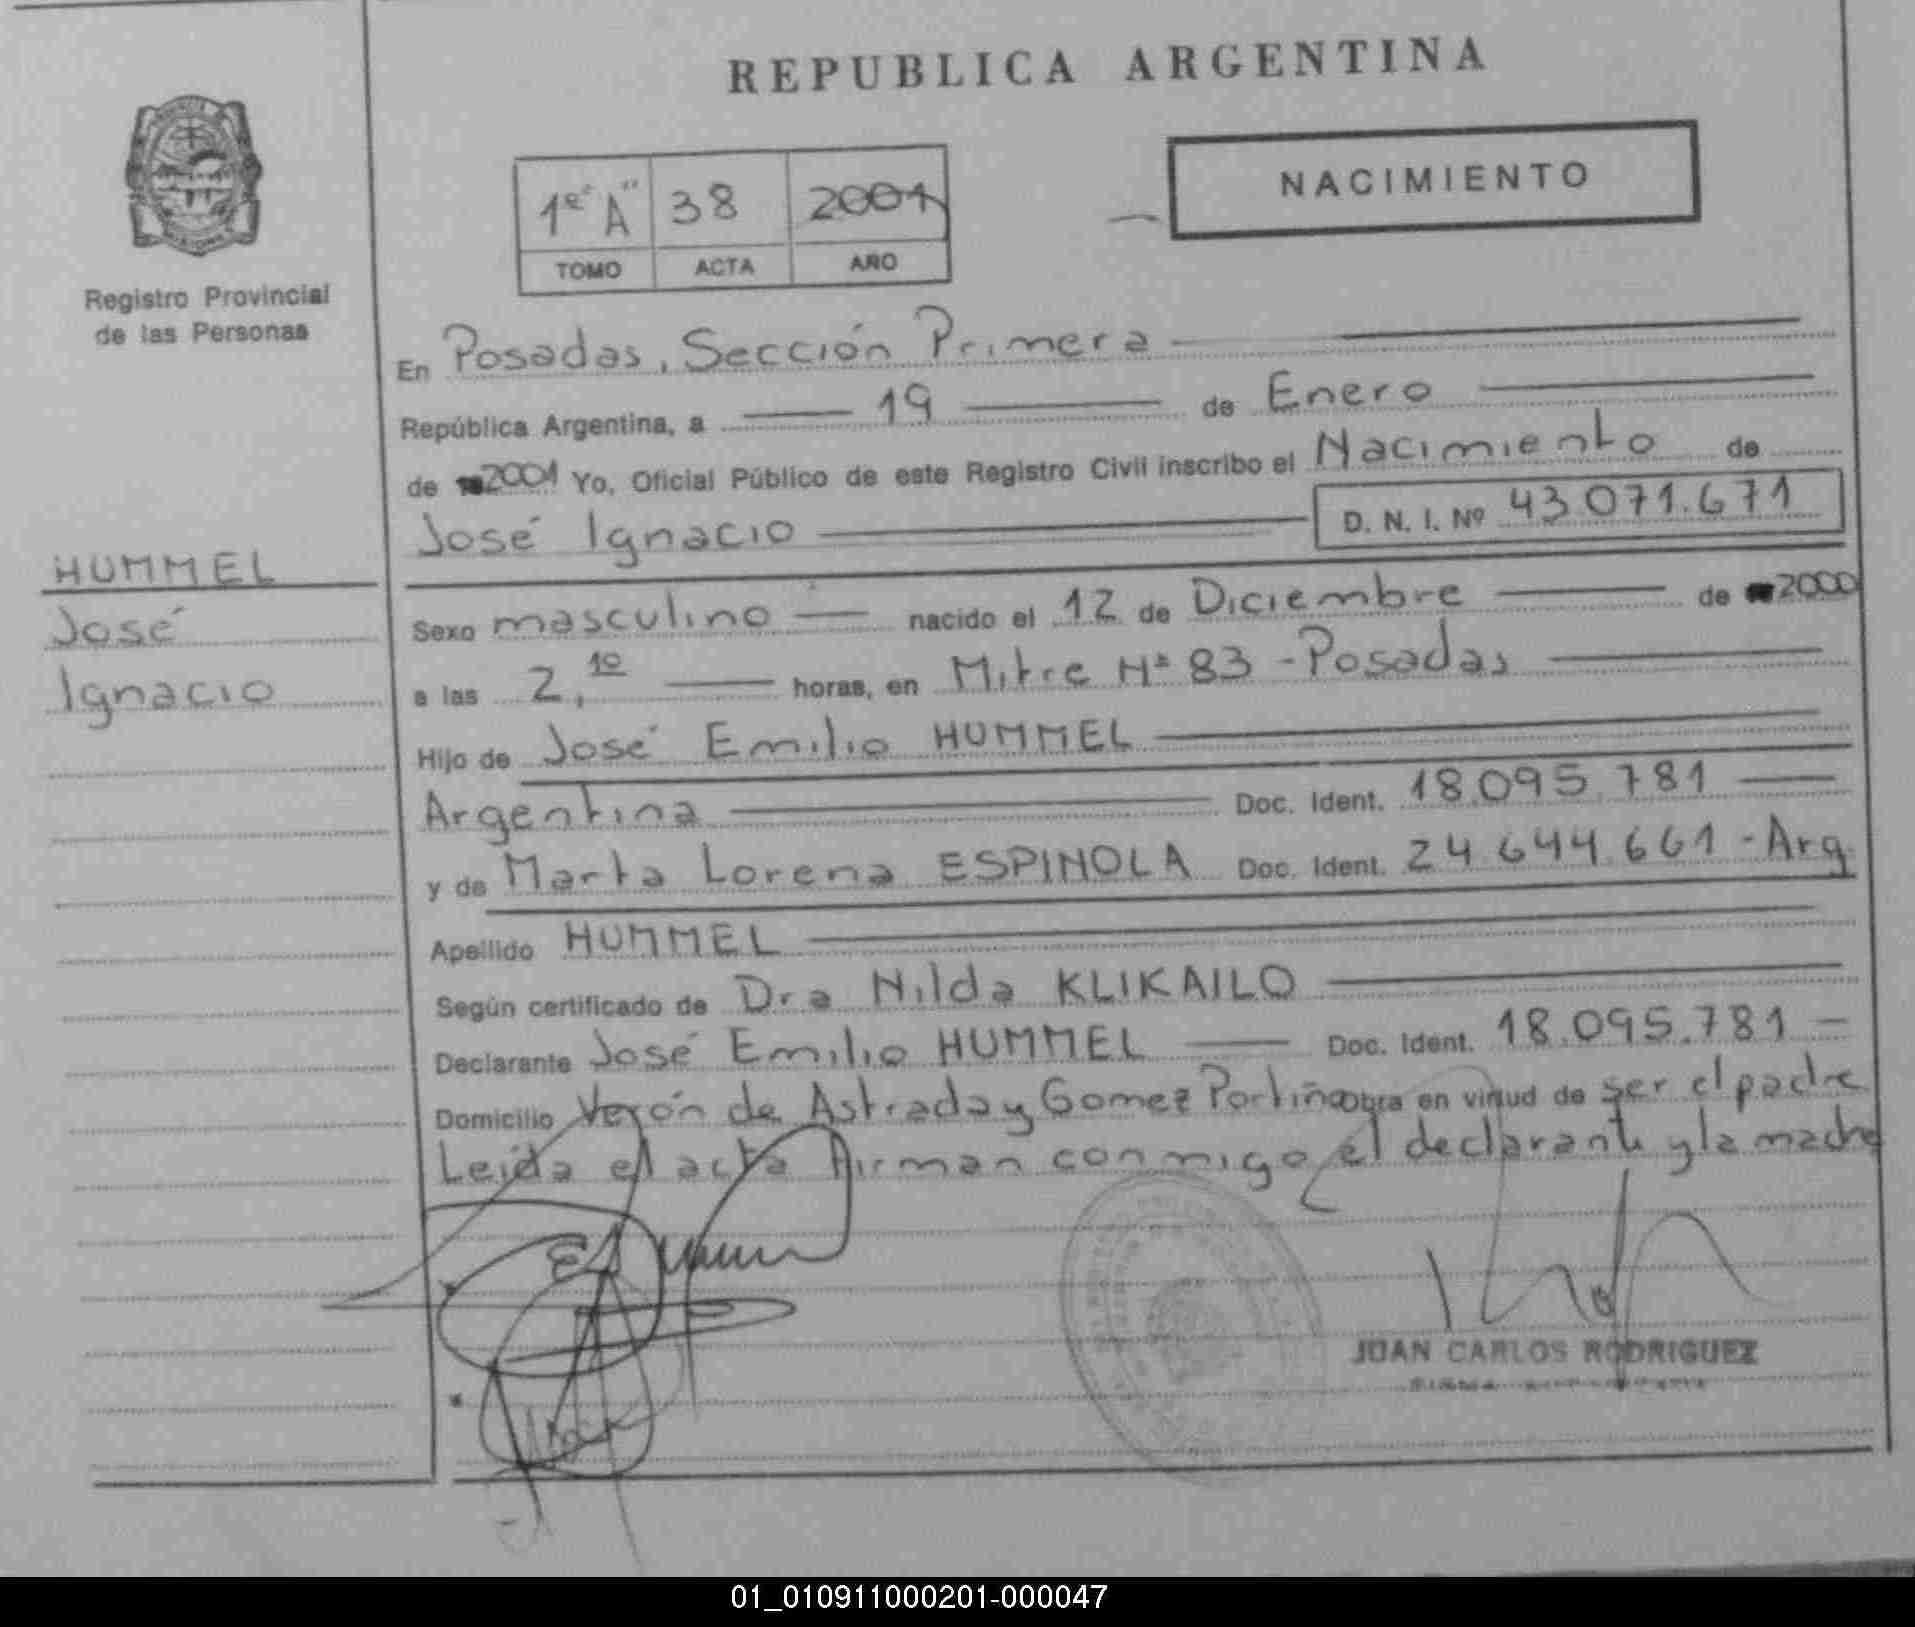 REPUBLICA ARGENTINA
NACIMIENTO
1º "A" 38 2001
TOMO ACTA AÑO
Registro Provincial
de las Personas
En Posadas, Sección Primera
República Argentina, a 19 de Enero
de 2001 Yo, Oficial Público de este Registro Civil inscribo el Nacimiento de
José Ignacio D. N. I. Nº 43.071.671
HUMMEL
José
Ignacio
Sexo masculino nacido el 12 de Diciembre de 2000
a las 2,10 horas, en Mitre Nº 83 - Posadas
Hijo de José Emilio HUMMEL
Argentina Doc. Ident. 18.095.781
y de Marta Lorena ESPINOLA Doc. Ident. 24.644.661 - Arg.
Apellido HUMMEL
Según certificado de Dra Nilda KLIKAILO
Declarante José Emilio HUMMEL Doc. Ident. 18.095.781
Domicilio Verón de Astrada y Gomez Portiño obra en virtud de ser el padre
Leída el acta firman conmigo el declarante y la madre
JUAN CARLOS RODRIGUEZ
01_010911000201-000047